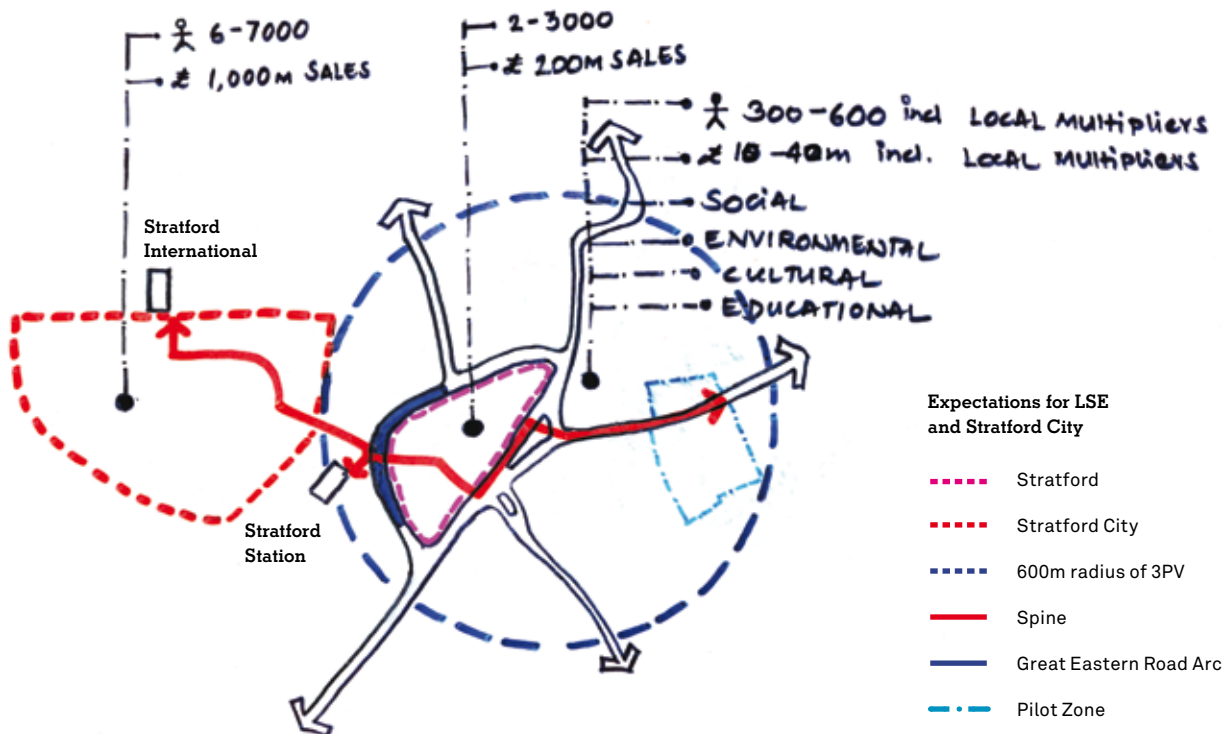 6-7000
£ 1,000m SALES
2-3000
£ 200m SALES
300-600 incl LOCAL MULTIPLIERS
£ 10-40m incl. LOCAL MULTIPLIERS
SOCIAL
ENVIRONMENTAL
CULTURAL
EDUCATIONAL
Stratford
International
Stratford
Station
Expectations for LSE
and Stratford City
Stratford
Stratford City
600m radius of 3PV
Spine
Great Eastern Road Arc
Pilot Zone